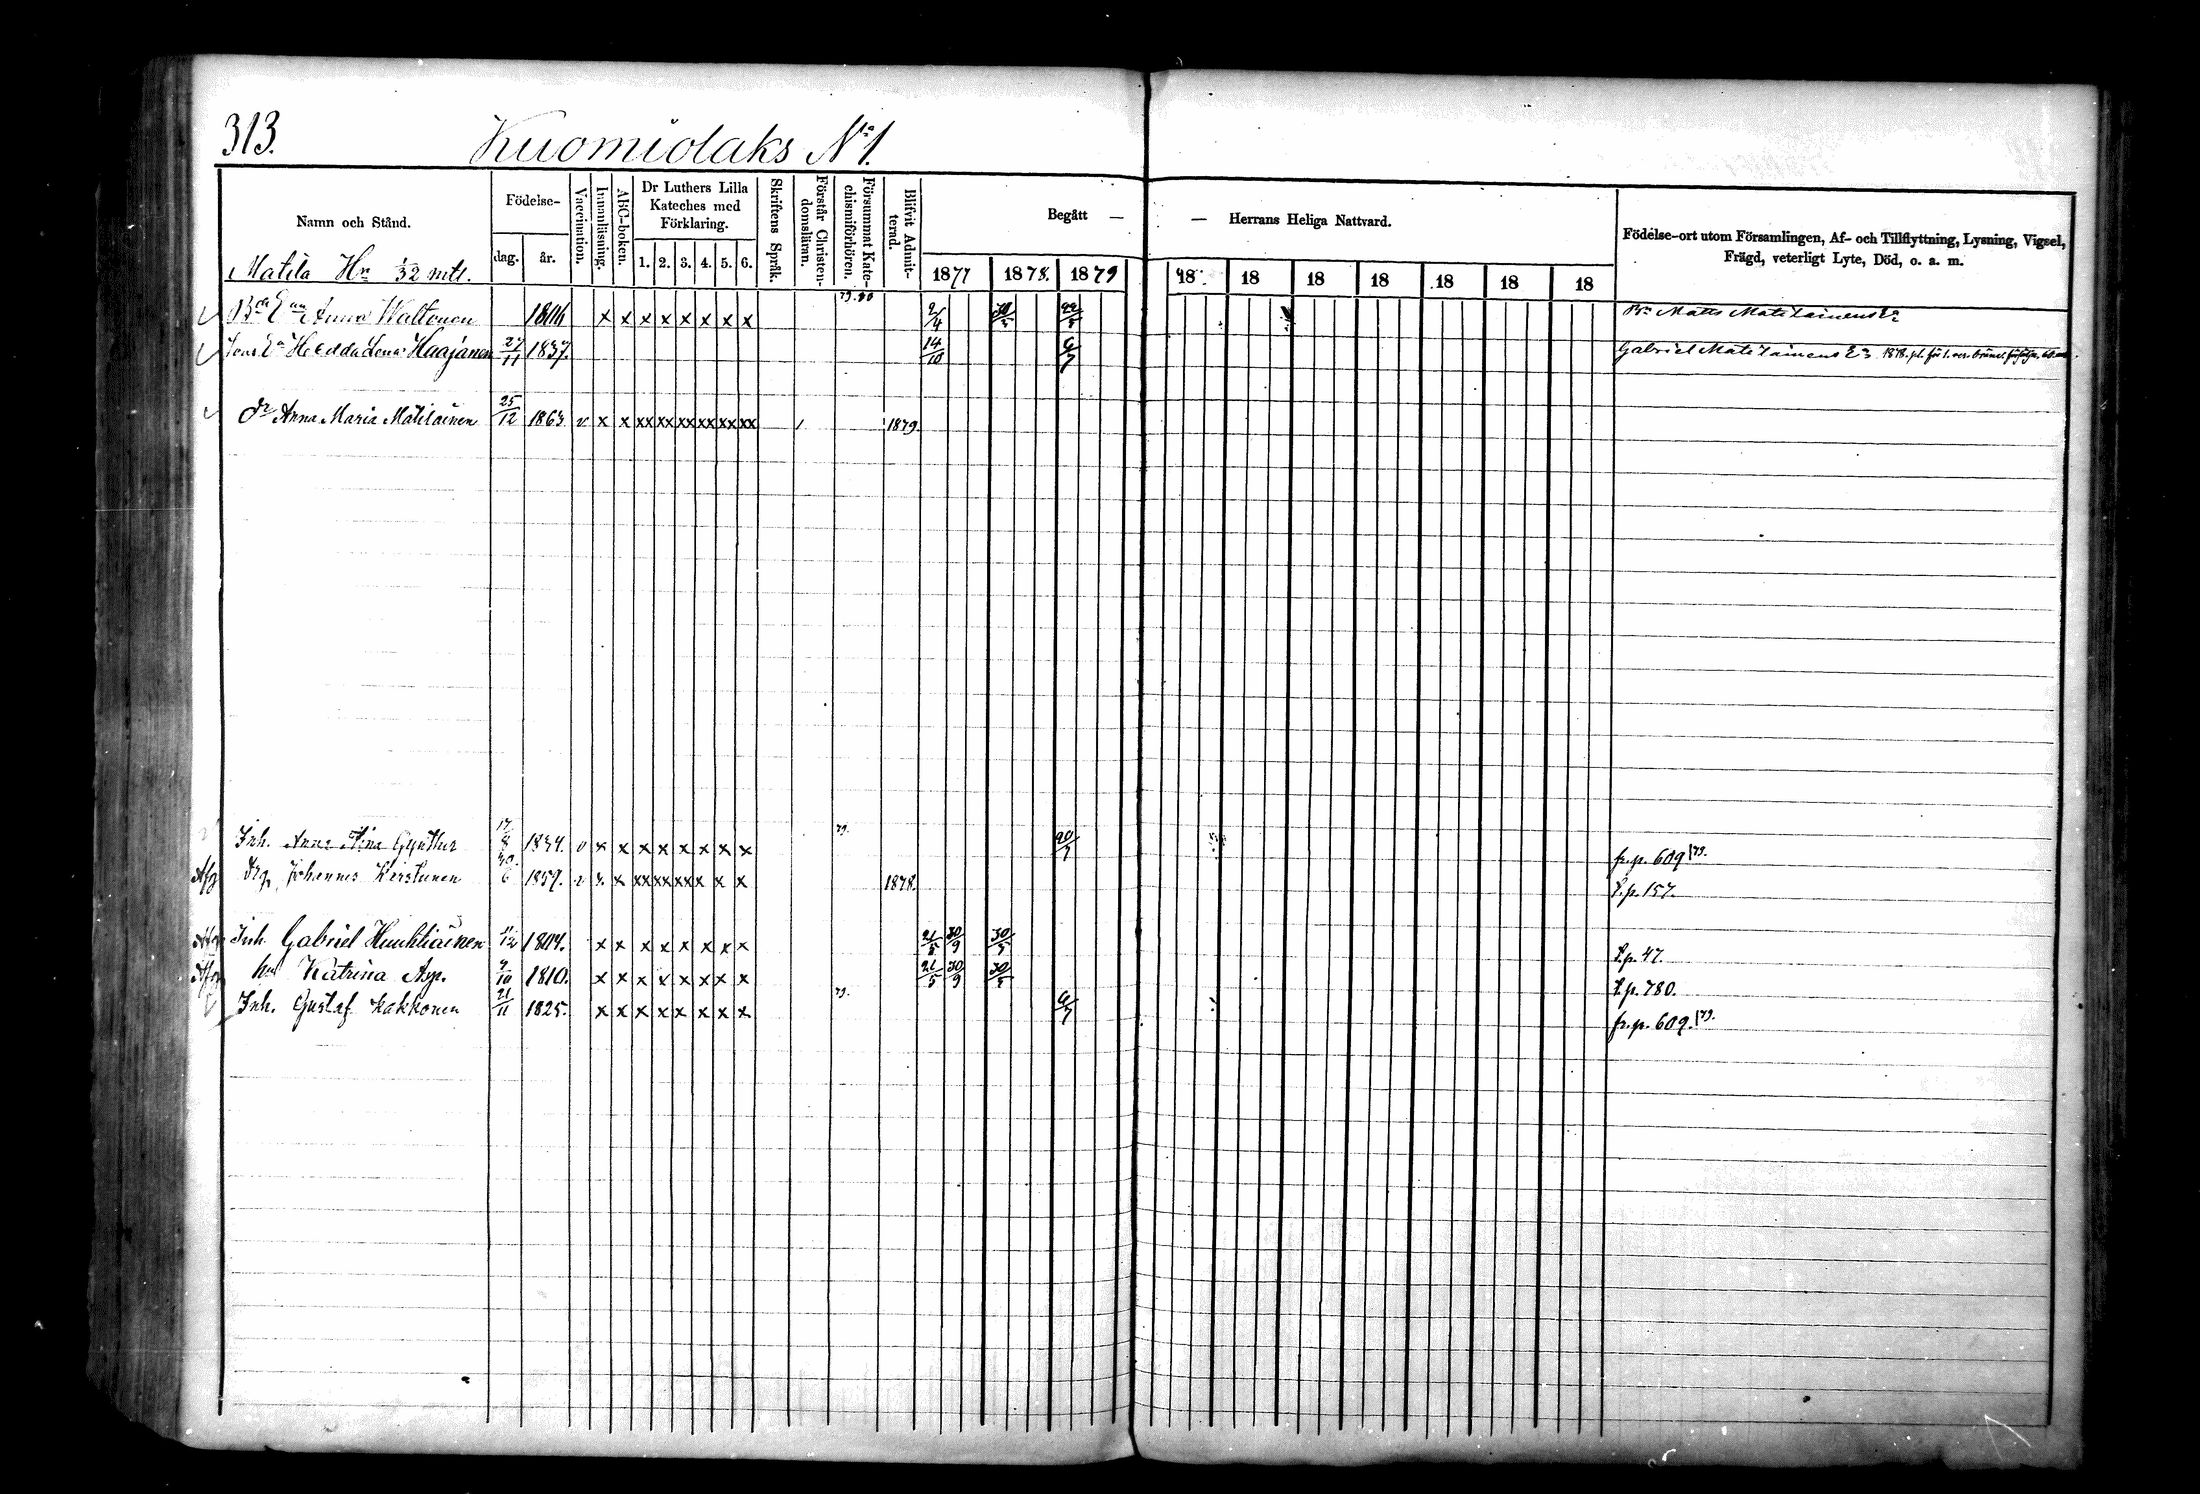 313. Kuomiolaks No 1.
Namn och Stånd. Födelse- dag. år. Vaccination. Innanläsning. ABC-boken. Dr Luthers Lilla Kateches med Förklaring. 1. 2. 3. 4. 5. 6. Skriftens Språk. Förstår Christendomslärann. Försummat Katechismiförhören. Blifvit Admitterad. Begått — — Herrans Heliga Nattvard. Födelse-ort utom Församlingen, Af- och Tillflyttning, Lysning, Vigsel, Frägd, veterligt Lyte, Död, o. a. m.
Matila Hn 1/32 mtl. 1877 1878. 1879 18 18 18 18 18 18 18
Anna Waltonen 1806 x x x x x x x x 79.80 2/4 Bn Matts Matilainens Ea
Hedda Lena Haajanen 27/11 1837. 14/10 6/7 Gabriel Matilainens Ea 1878.
dr Anna Maria Matilainen 25/12 1863 v x x xx xx xx xx xx xx / 1879.
Inh. Anna Stina Gynther 17/8 1834. v x x x x x x x x 79. 20/7 fr. p. 609 /79.
Afg Drg. Johannes Kerstunen 30/6 1859. v x x xx xx xx x x x 1878. t. p. 157.
Afg Inh. Gabriel Huuhtiainen 11/12 1804. x x x x x x x x 21/5 30/9 30/5 t. p. 47.
Afg hu Katrina Asp. 9/10 1810. x x x x x x x x 21/5 30/9 30/5 t. p. 780.
Inh. Gustaf Kakkonen 21/11 1825. x x x x x x x x 79. 6/7 fr. p. 609. /79.